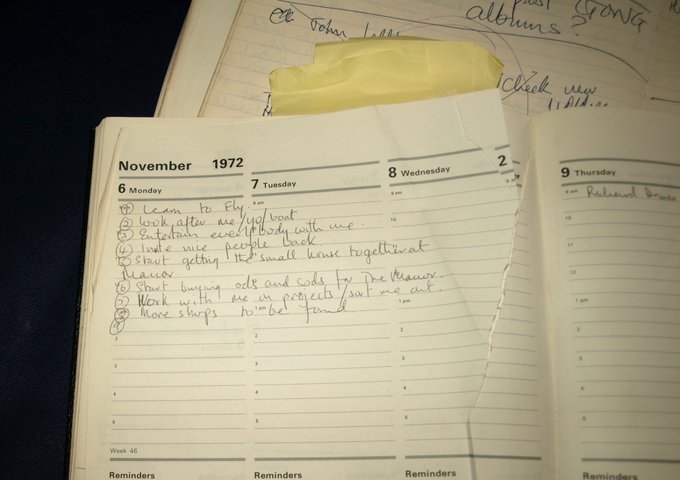 past GONG
albums?
John
check new
November 1972
6 Monday
7 Tuesday
8 Wednesday
2
9 Thursday
9 am
9 am
9 am
10
① Learn to Fly.
② Look after me/yo/boat.
③ Entertain everybody with me.
④ Invite nice people back
⑤ Start getting the "small house together" at
Manor.
⑥ Start buying odds and sods for The Manor.
⑦ Work with me on projects/sort me out.
⑧ More shops to be found.
⑨
Richard
10
11
12
1 pm
1 pm
2
2
2
2
3
3
3
3
4
4
4
4
5
5
5
5
Week 46
Reminders
Reminders
Reminders
Reminders